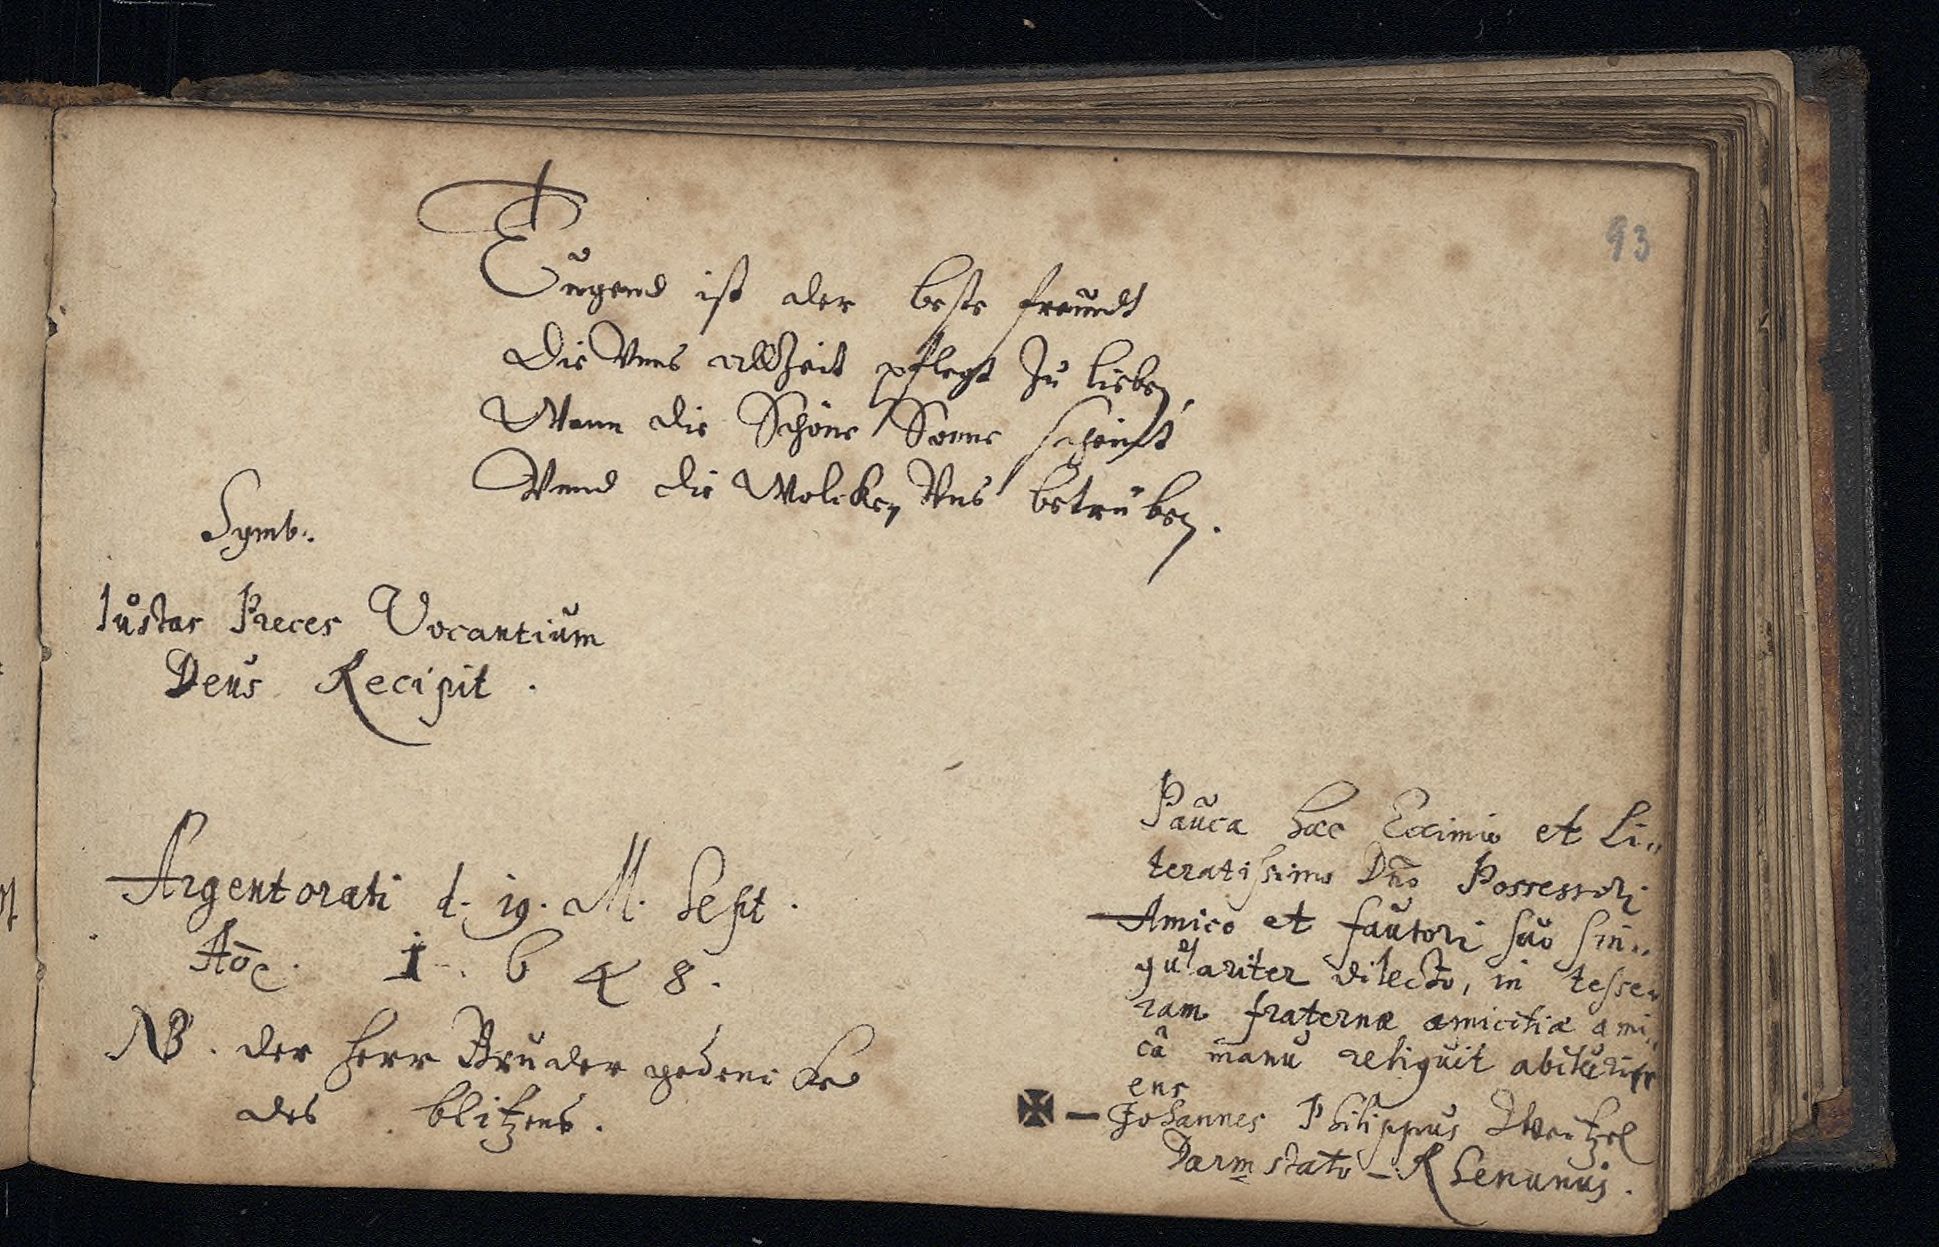 93
Tugend ist der beste freundt
Die Vnns allzeit pflegt zu lieben,
Wann die Schöne Sonne scheint
Vnnd die Wolcken Vns betrüben.
Symb:
Iustas Preces Vocantium
Deus Recipit.
Argentorati d. 19. M. Sept.
Aōe. 1648.
NB. der Herr Bruder gedencke
des blitzens.
Pauca haec Eximio et Li„
teratissimo Dn̄o Possessori
Amico et fautori suo sin„
gulariter dilecto, in tesse„
ram fraternæ amicitiæ ami„
câ manu reliquit abituri„
ens
Johannes Philippus
Darmstato-Rhenanus.